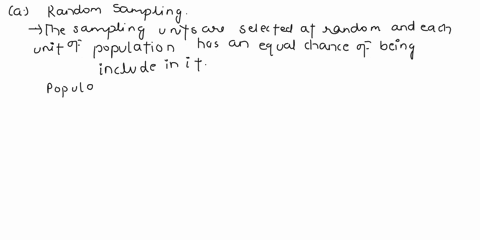 (a:) Random Sampling.
→ The sampling units are selected at random and each
unit of population has an equal chance of being
include in it.
Populo